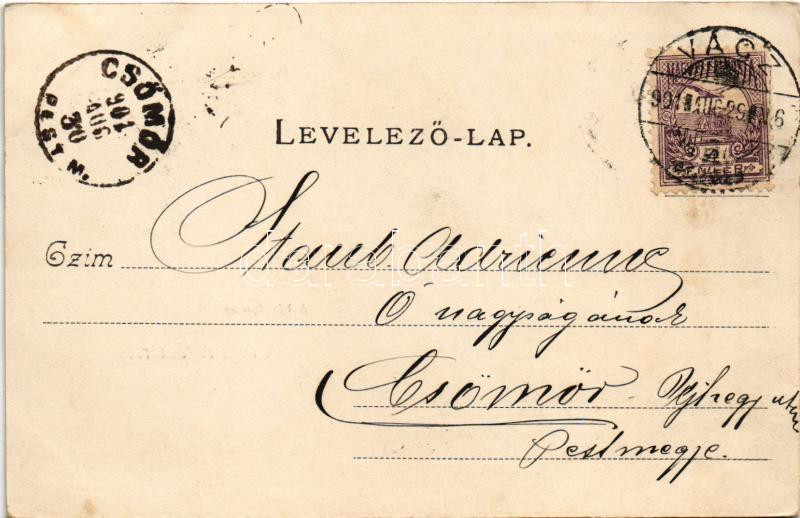 VÁCZ
901 AUG. 29
CSÖMÖR
901
AUG
30
PEST M.
LEVELEZŐ-LAP.
Czim Staub Adrienne
Ő nagyságának
Csömör
Pestmegye.
darabanth